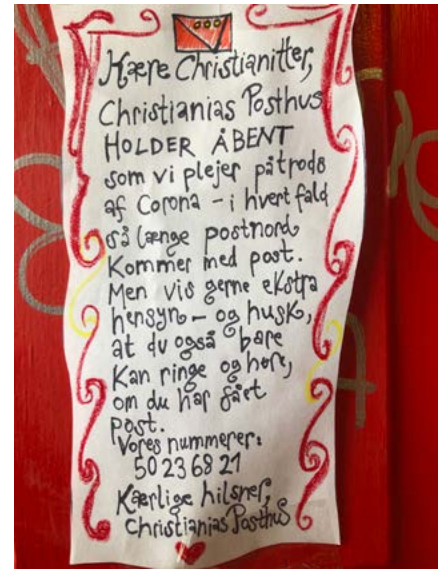 Kære Christianitter,
Christianias Posthus
HOLDER ÅBENT
som vi plejer påtrods
af Corona - i hvert fald
så længe postnord
Kommer med post.
Men vis gerne ekstra
hensyn - og husk,
at du også bare
Kan ringe og høre,
om du har fået
post.
Vores nummerer:
50 23 68 21
Kærlige hilsner,
Christianias Posthus